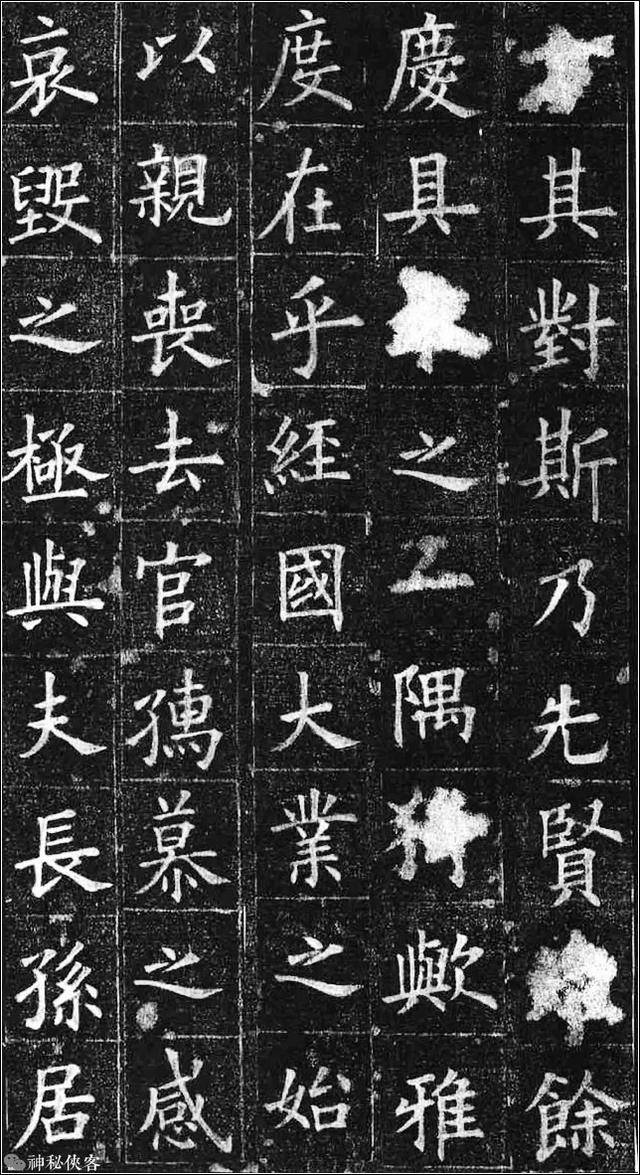 其對斯乃先賢餘
慶具之隅猗歟雅
度在乎經國大業之始
以親喪去官孺慕之感
哀毀之極與夫長孫居
神秘俠客